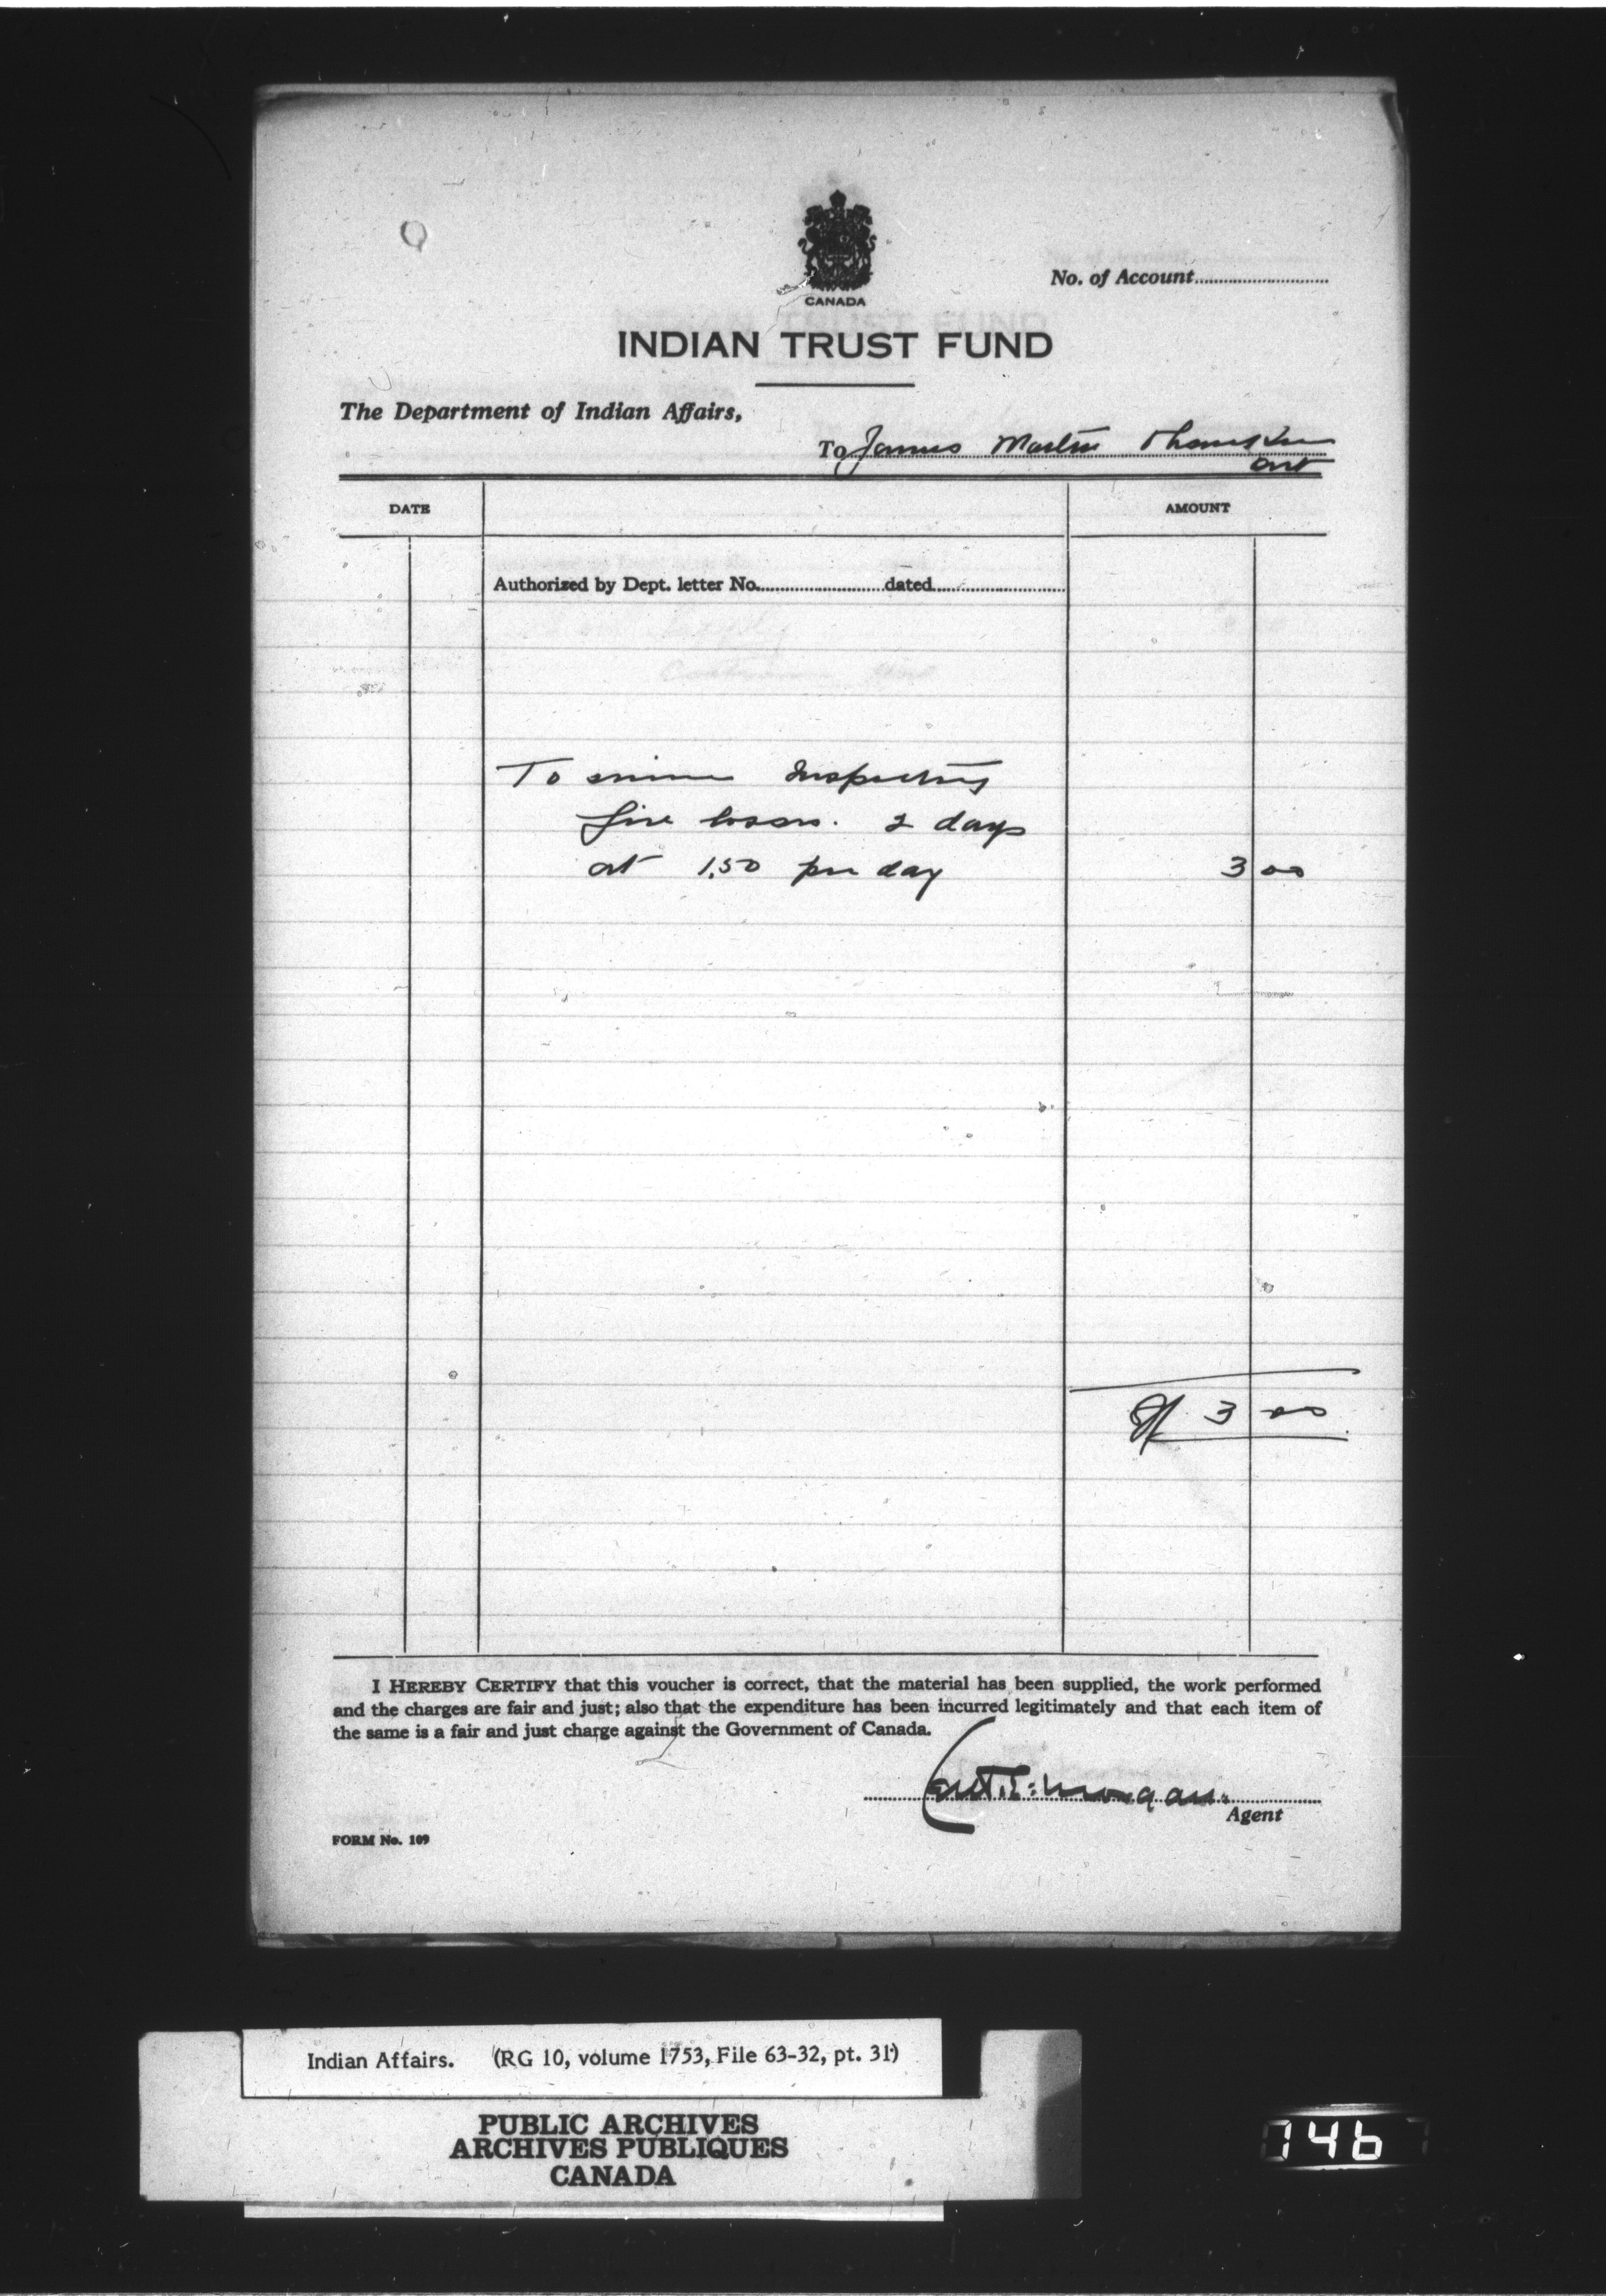 CANADA
No. of Account
INDIAN TRUST FUND
The Department of Indian Affairs,
To James Martin
Ont
DATE
AMOUNT
Authorized by Dept. letter No. dated
To Inspecting
fire losses. 2 days
at 1.50 per day 3 00
$ 3 00
I HEREBY CERTIFY that this voucher is correct, that the material has been supplied, the work performed
and the charges are fair and just; also that the expenditure has been incurred legitimately and that each item of
the same is a fair and just charge against the Government of Canada.
Morgan
Agent
FORM No. 109
Indian Affairs. (RG 10, volume 1753, File 63-32, pt. 31)
PUBLIC ARCHIVES
ARCHIVES PUBLIQUES
CANADA
746